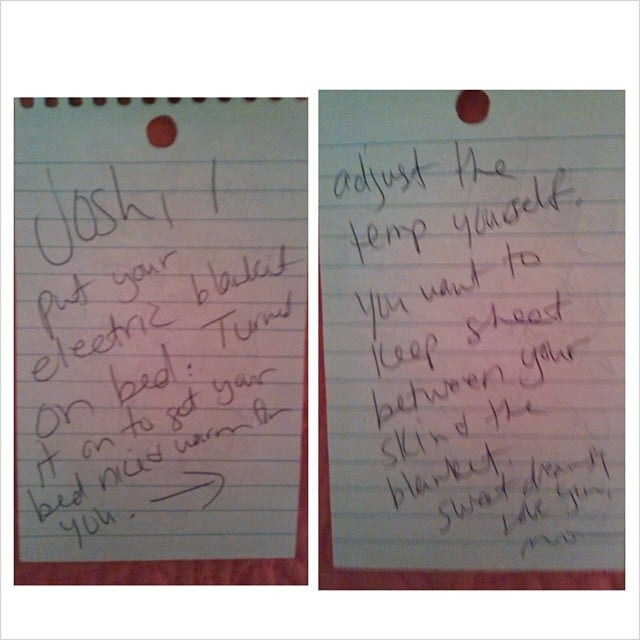 Josh, I
put your
electric blanket
on bed. Turned
it on to get your
bed nice & warm for
you. →
adjust the
temp yourself.
you want to
keep sheet
between your
skin & the
blanket.
sweet dreams
Love you,
mom